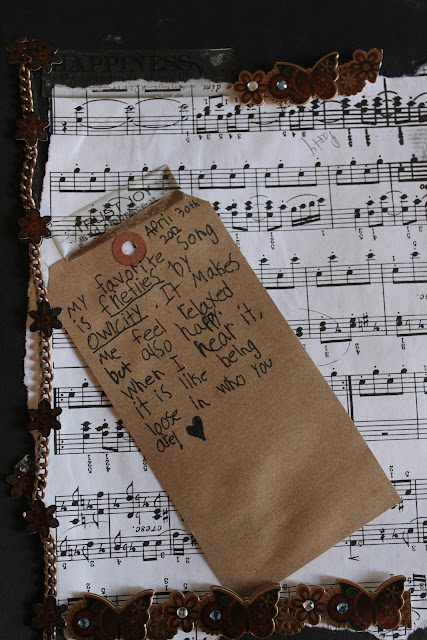 HAPPINESS
dim
JUST JOY
April 30th
My favorite song
is fireflies by
OWLCITY. It makes
me feel relaxed
but also happy
when I hear it,
it is like being
loose in who you
are!
cresc.